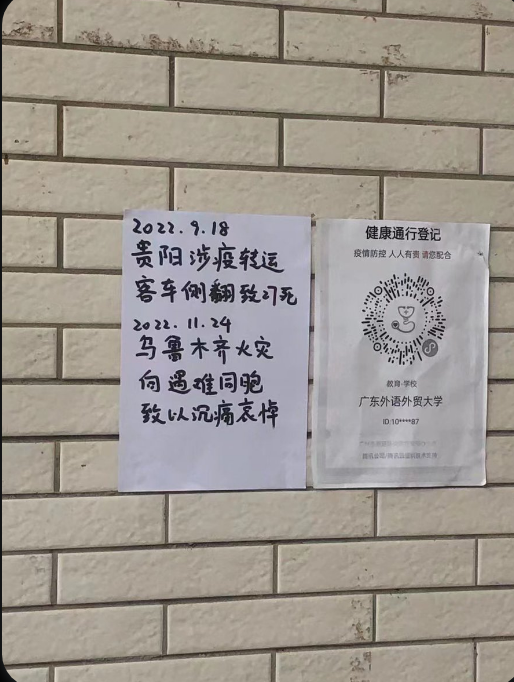 2022.9.18
贵阳涉疫转运
客车侧翻致27死
2022.11.24
乌鲁木齐火灾
向遇难同胞
致以沉痛哀悼
健康通行登记
疫情防控 人人有责 请您配合
教育-学校
广东外语外贸大学
ID:10****87